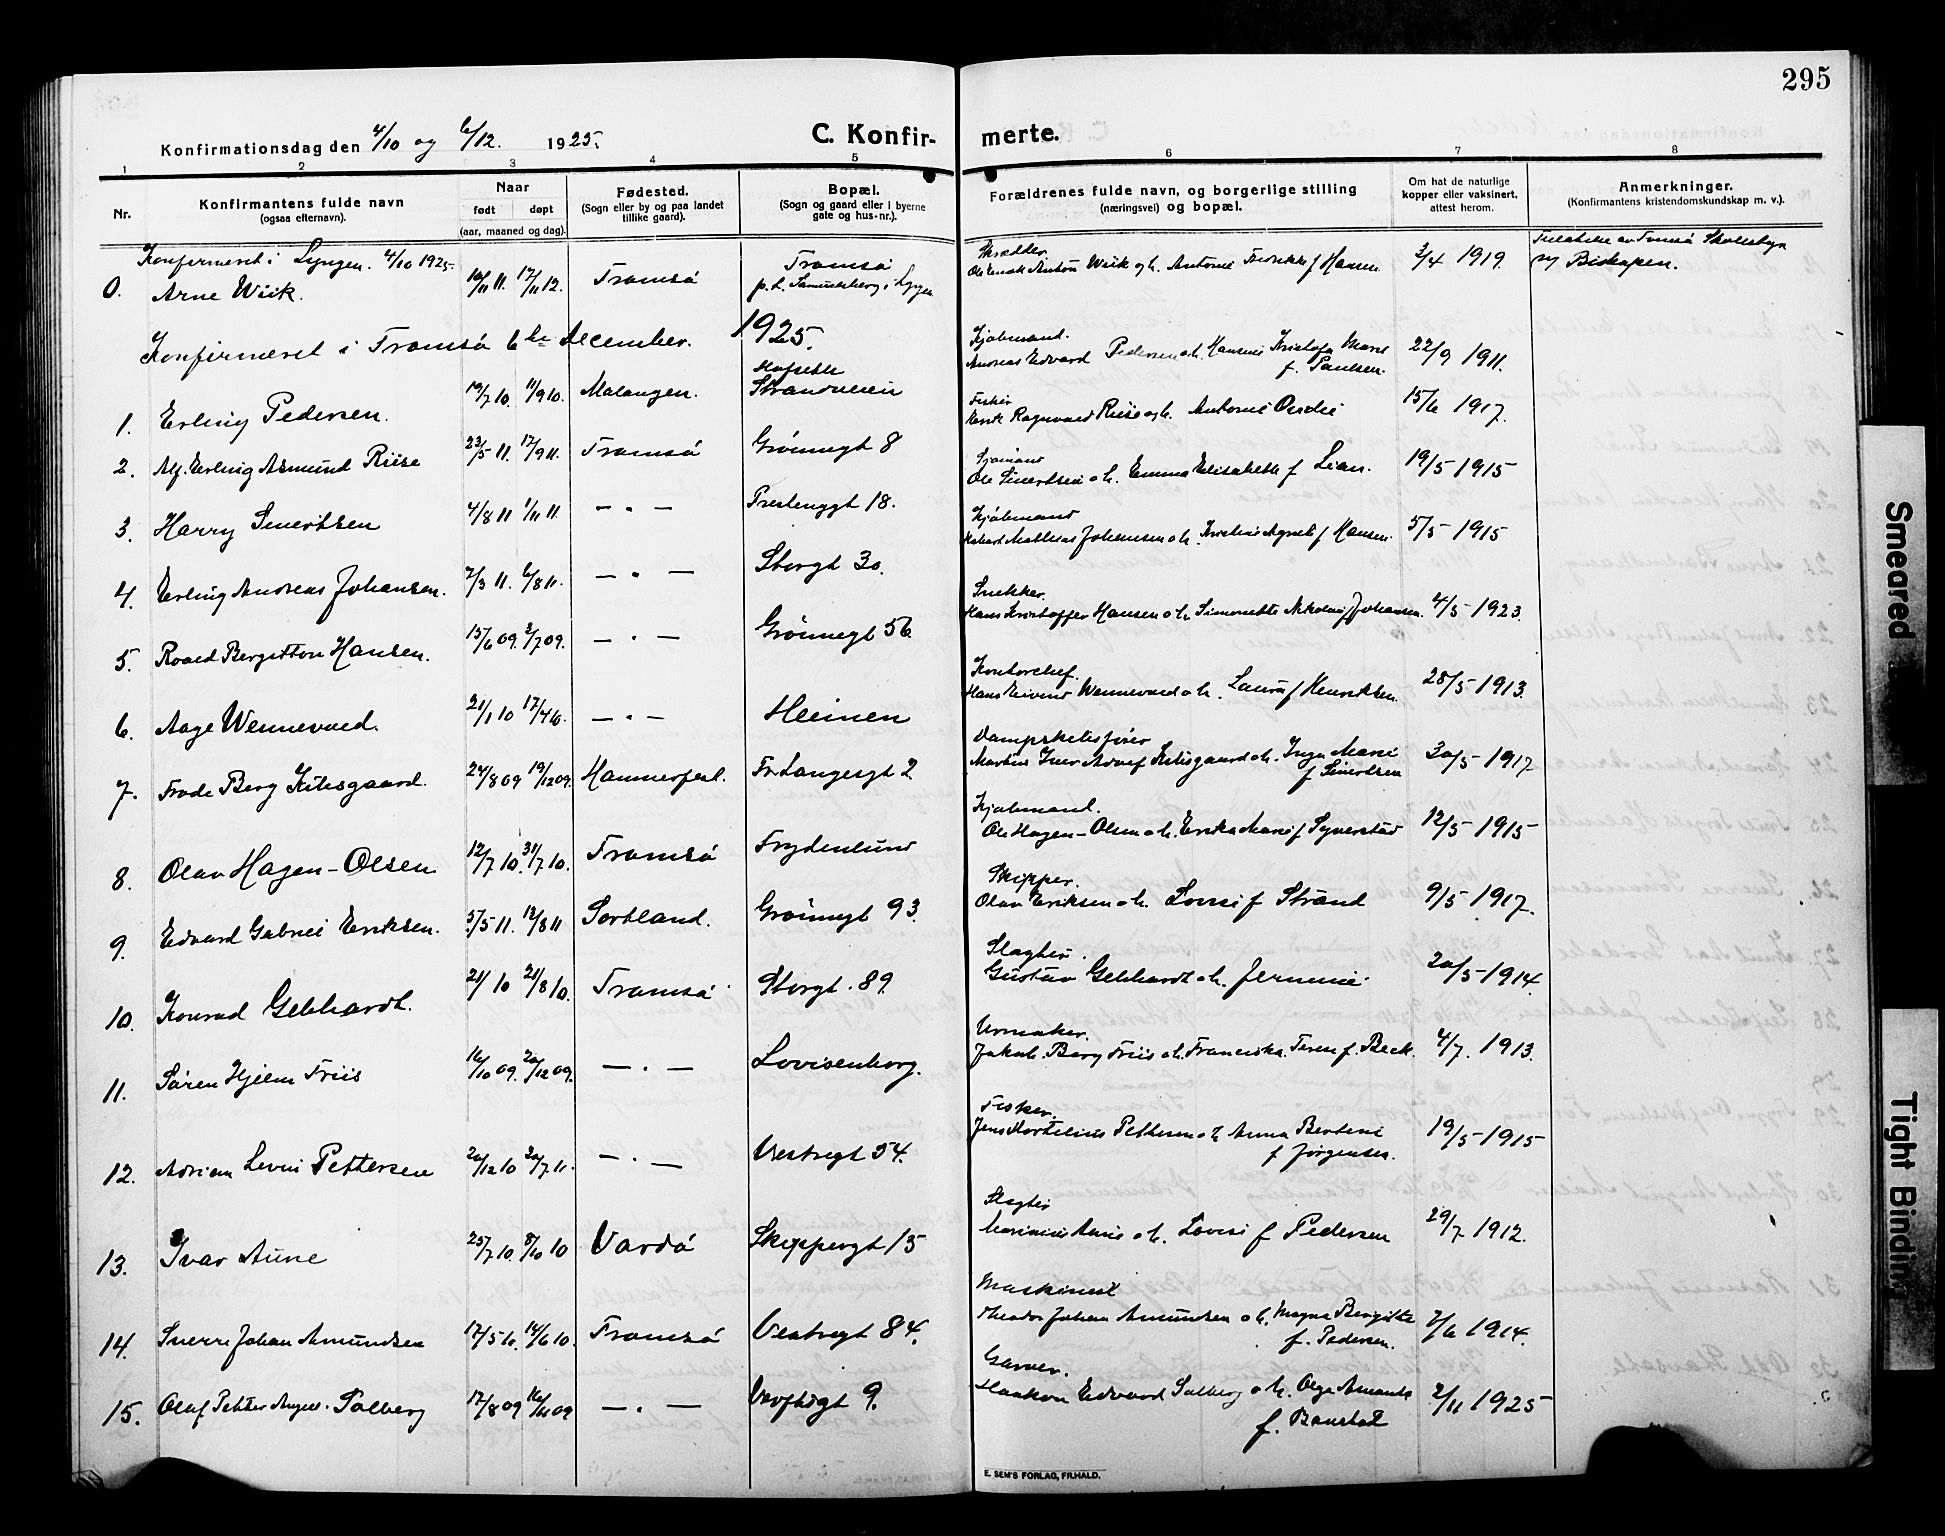 295
Konfirmationsdag den 4/10 og 6/12. 1925.
C. Konfir-
merte.
1 2 3 4 5 6 7 8
Nr.
Konfirmantens fulde navn
(ogsaa efternavn).
Naar
født døpt
(aar, maaned og dag).
Fødested.
(Sogn eller by og paa landet
tillike gaard).
Bopæl.
(Sogn og gaard eller i byerne
gate og hus-nr.).
Forældrenes fulde navn, og borgerlige stilling
(næringsvei) og bopæl.
Om hat de naturlige
kopper eller vaksinert,
attest herom.
Anmerkninger.
(Konfirmantens kristendomskundskap m. v.).
Konfirmeret i Lyngen. 4/10 1925.
0. Arne Wiik. 12. Tromsø
Tromsø
p.t. Samuelsberg i Lyngen
Skrædder.
Anton Wiik o h. Antonie Fredrikke f Hansen. 3/4 1919.
av Tromsø Skolestyre
Biskopen.
Konfirmeret i Tromsø 6te december. 1925.
1. Erling Pedersen. 19/7 10. 11/9 10. Malangen.
Strandveien
Kjøbmand.
Andreas Edvard Pedersen o h. Hansine Kristofa Marie
f. Paulsen. 22/9 1911.
2. Alf Erling Asmund Riise 23/5 11. 17/9 11. Tromsø Grønnegt 8
Fisker
Ragnvald Riise o h. Antonie 15/6 1917.
3. Harry Sivertsen 4/8 11 1/11 11. — " — Prestenggt 18.
Sjømand
Ole Sivertsen o h. Emma Elisabeth f Lian. 19/5 1915
4. Erling Andreas Johansen. 7/3 11. 6/8 11. — " — Storgt 30.
Kjøbmand
Mathias Johansen o h. Kristine Agnete f Hansen. 5/5 1915
5. Roald Bergitton Hansen. 15/6 09. 3/7 09. — " — Grønnegt 56.
Snekker.
Hans Kristoffer Hansen o h. Simonette Nikoline f Johansen. 4/5 1923.
6. Aage Wennevold. 21/1 10 17/4 10. — " — Heimen
Kontorchef.
Hans Eivind Wennevold o h. Laura f Henriksen. 28/5 1913.
7. Frode Berg Kilsgaard. 24/8 09 19/12 09. Hammerfest. Fr. Langesgt 2
Dampskibsfører
Martin Iver Adolf Kilsgaard o h. Inga Marie
f Sivertsen 30/5 1917.
8. Olav Hagen-Olsen 12/7 10. 31/7 10. Tromsø Frydenlund
Kjøbmand.
Ole Hagen-Olsen o h. Erika Marie f Syverstad 12/5 1915
9. Edvard Gabriel Eriksen. 5/5 11. 13/8 11 Sortland. Grønnegt 93.
Skipper.
Olav Eriksen o h. Lovise f Strand 9/5 1917.
10. Konrad Gebhardt. 21/8 10. Tromsø Storgt. 89.
Slagter.
Gustav Gebhardt o h. Jermine 20/5 1914.
11. Søren Hjelm Friis 16/10 09. 20/12 09. — " — Lovisenborg.
Urmaker.
Jakob Berg Friis o h. Franciska f. Beck. 4/7. 1913.
12. Adrian Levin Pettersen 20/12 10 20/7 11. — " — Vestregt 54.
Fisker.
Jens Kortelius Pettersen o h Anna Bertine
f Jørgensen. 19/5 1915
13. Ivar Aune 25/7 10. 8/10 10 Vardø Skippergt 15
Slagter
Aune o h. Lovise f Pedersen 29/7 1912.
14. Sverre Johan Amundsen 17/5 10. 14/6 10. Tromsø Vestregt 84.
Maskinist
Theodor Johan Amundsen o h. Magna Bergitte
f. Pedersen. 7/6 1914.
15. Olaf Petter Solberg 17/8 09 09 — " — Verftsgt 9.
Garver.
Haakon Edvard Solberg o h. Olga Amanda
f. 2/11 1925
E. SEM'S FORLAG, FR.HALD.
Smeared
Tight Binding